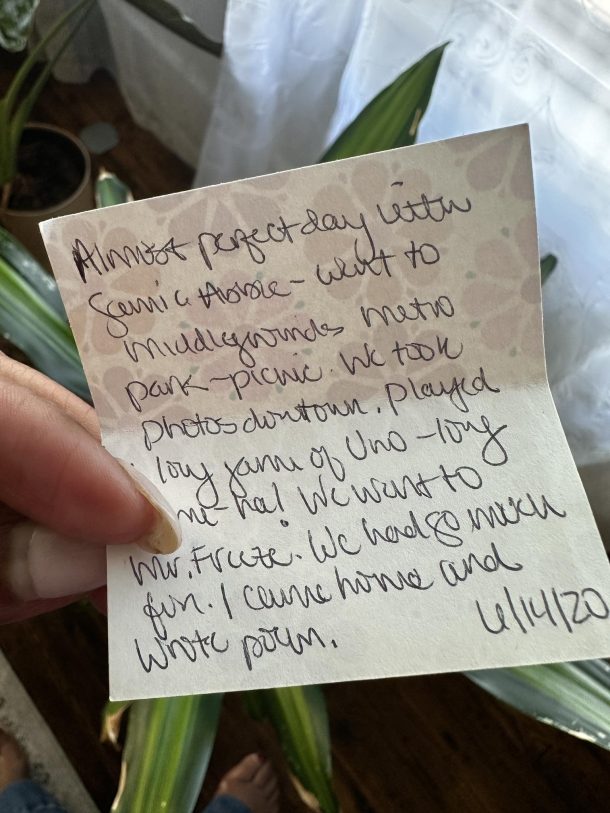 Almost perfect day with
Gemi & Abbie - went to
Middlegrounds metro
park - picnic. We took
photos downtown. Played
long game of Uno - long
me - ha! We went to
Mr. Freeze. We had so much
fun. I came home and
wrote poem.
6/14/20